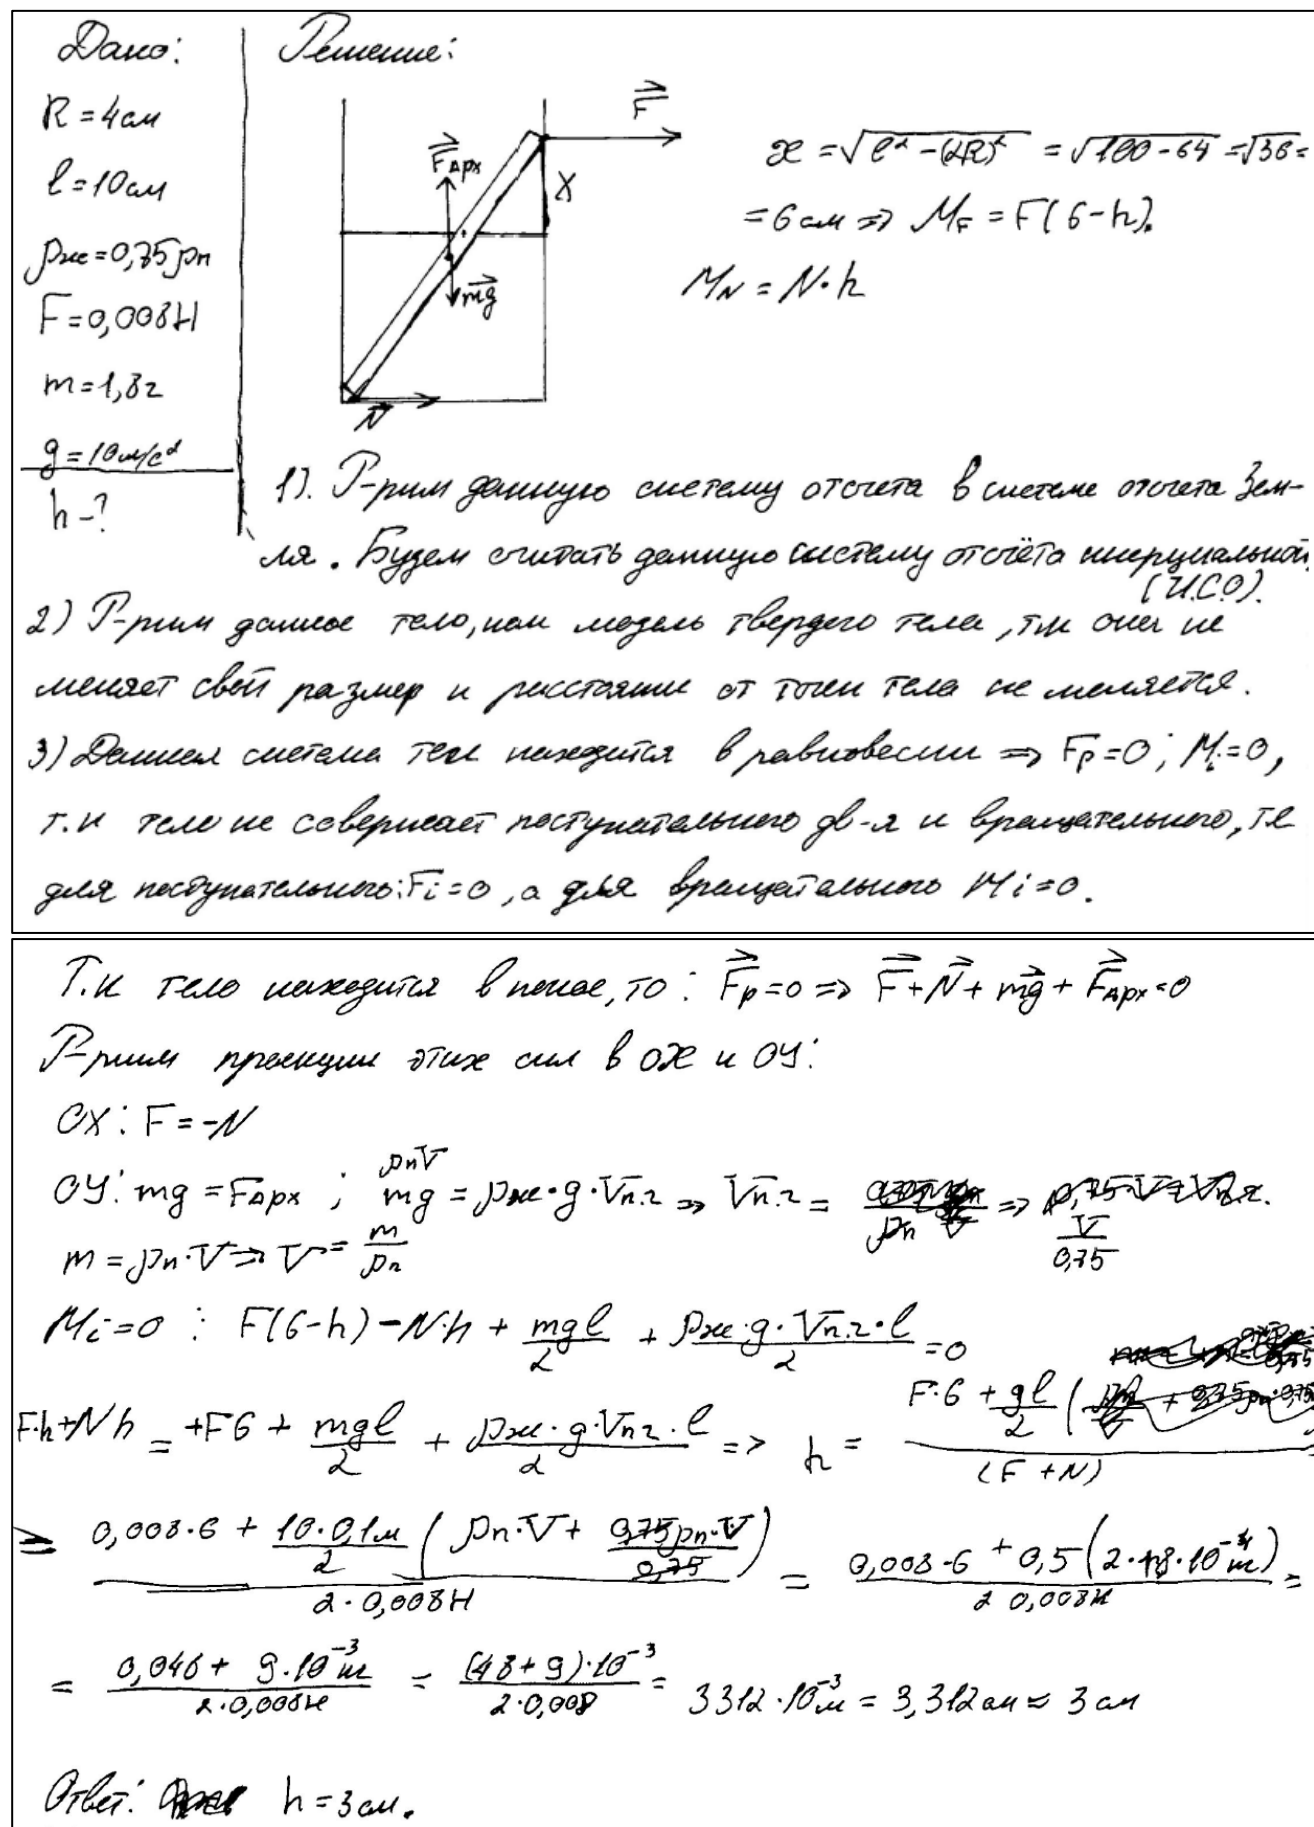 Дано:
R = 4 см
l = 10 см
ρж = 0,75 ρп
F = 0,008 Н
m = 1,8 г
g = 10 м/с²
h - ?
Решение:
F
FАрх
X
mg
N
x = √(l² - (2R)²) = √(100 - 64) = √36 =
= 6 см ⇒ MF = F(6 - h).
MN = N·h
1). Р-рим данную систему отсчета в системе отсчета Зем-
ля. Будем считать данную систему отсчёта инерциальной.
(И.С.О).
2) Р-рим данное тело, как модель твердого тела, т.к она не
меняет свой размер и расстояние от точки тела не меняется.
3) Данная система тел находится в равновесии ⇒ Fр = 0; Mi = 0,
т.к тело не совершает поступательного дв-я и вращательного, т.е
для поступательного: Fi = 0, а для вращательного Mi = 0.
Т.к тело находится в покое, то: Fр = 0 ⇒ F + N + mg + FАрх = 0
Р-рим проекции этих сил в OX и OY:
OX: F = -N
OY: mg = FАрх ; ρпV mg = ρж·g·Vп.г ⇒ Vп.г = ⇒ V/0,75
m = ρп·V ⇒ V = m/ρп
Mi = 0 : F(6 - h) - N·h + mgl/2 + ρж·g·Vп.г·l/2 = 0
F·h + Nh = +F6 + mgl/2 + ρж·g·Vпг·l/2 ⇒ h = F·6 + gl/2 ( /(F + N)
= (0,008·6 + 10·0,1м/2 (ρп·V + 0,75ρп·V/0,75))/(2·0,008Н) = (0,008·6 + 0,5(2·18·10⁻⁴м))/(2 0,008Н) =
= (0,048 + 9·10⁻³м)/(2·0,008Н) = (48 + 9)·10⁻³/(2·0,008) = 3312·10⁻³м = 3,312 см ≈ 3 см
Ответ: h = 3 см.